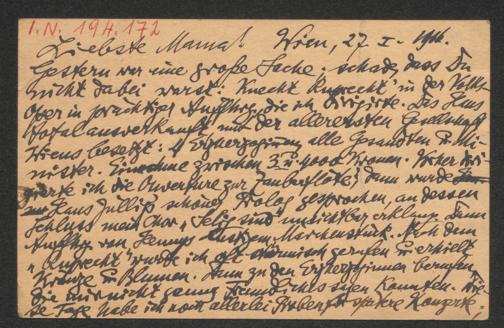 I. N. 194.172
Liebste Mama! Wien, 27. I. 1916.
Gestern war eine große Sache. schade, dass Du
nicht dabei warst: Knecht Ruprecht in der Volks-
oper in prächtiger Aufführg, die ich dirigirte. Das Haus
total ausverkauft, mit der allerersten Gesellschaft
Wiens besetzt: Erzherzoginnen alle Gesandten u. Mi-
nister. Einnahme zwischen 3 u. 4000 Kronen. Vorher diri-
gierte ich die Ouverture zur Zauberflöte; dann wurde
Hans Müllers schöner Prolog gesprochen, an dessen
Schluss mein Chor „Selig sind" unsichtbar erklang. Dann
Aufführg von lustigem Märchenstück. Nach dem
„Ruprecht" wurde ich oft stürmisch gerufen u. erhielt
Kränze u. Blumen. Dann zu den Erzherzoginnen berufen,
die mir nicht genug Freundliches sagen konnten. Die-
se Tage habe ich noch allerlei Proben für spätere Konzerte.